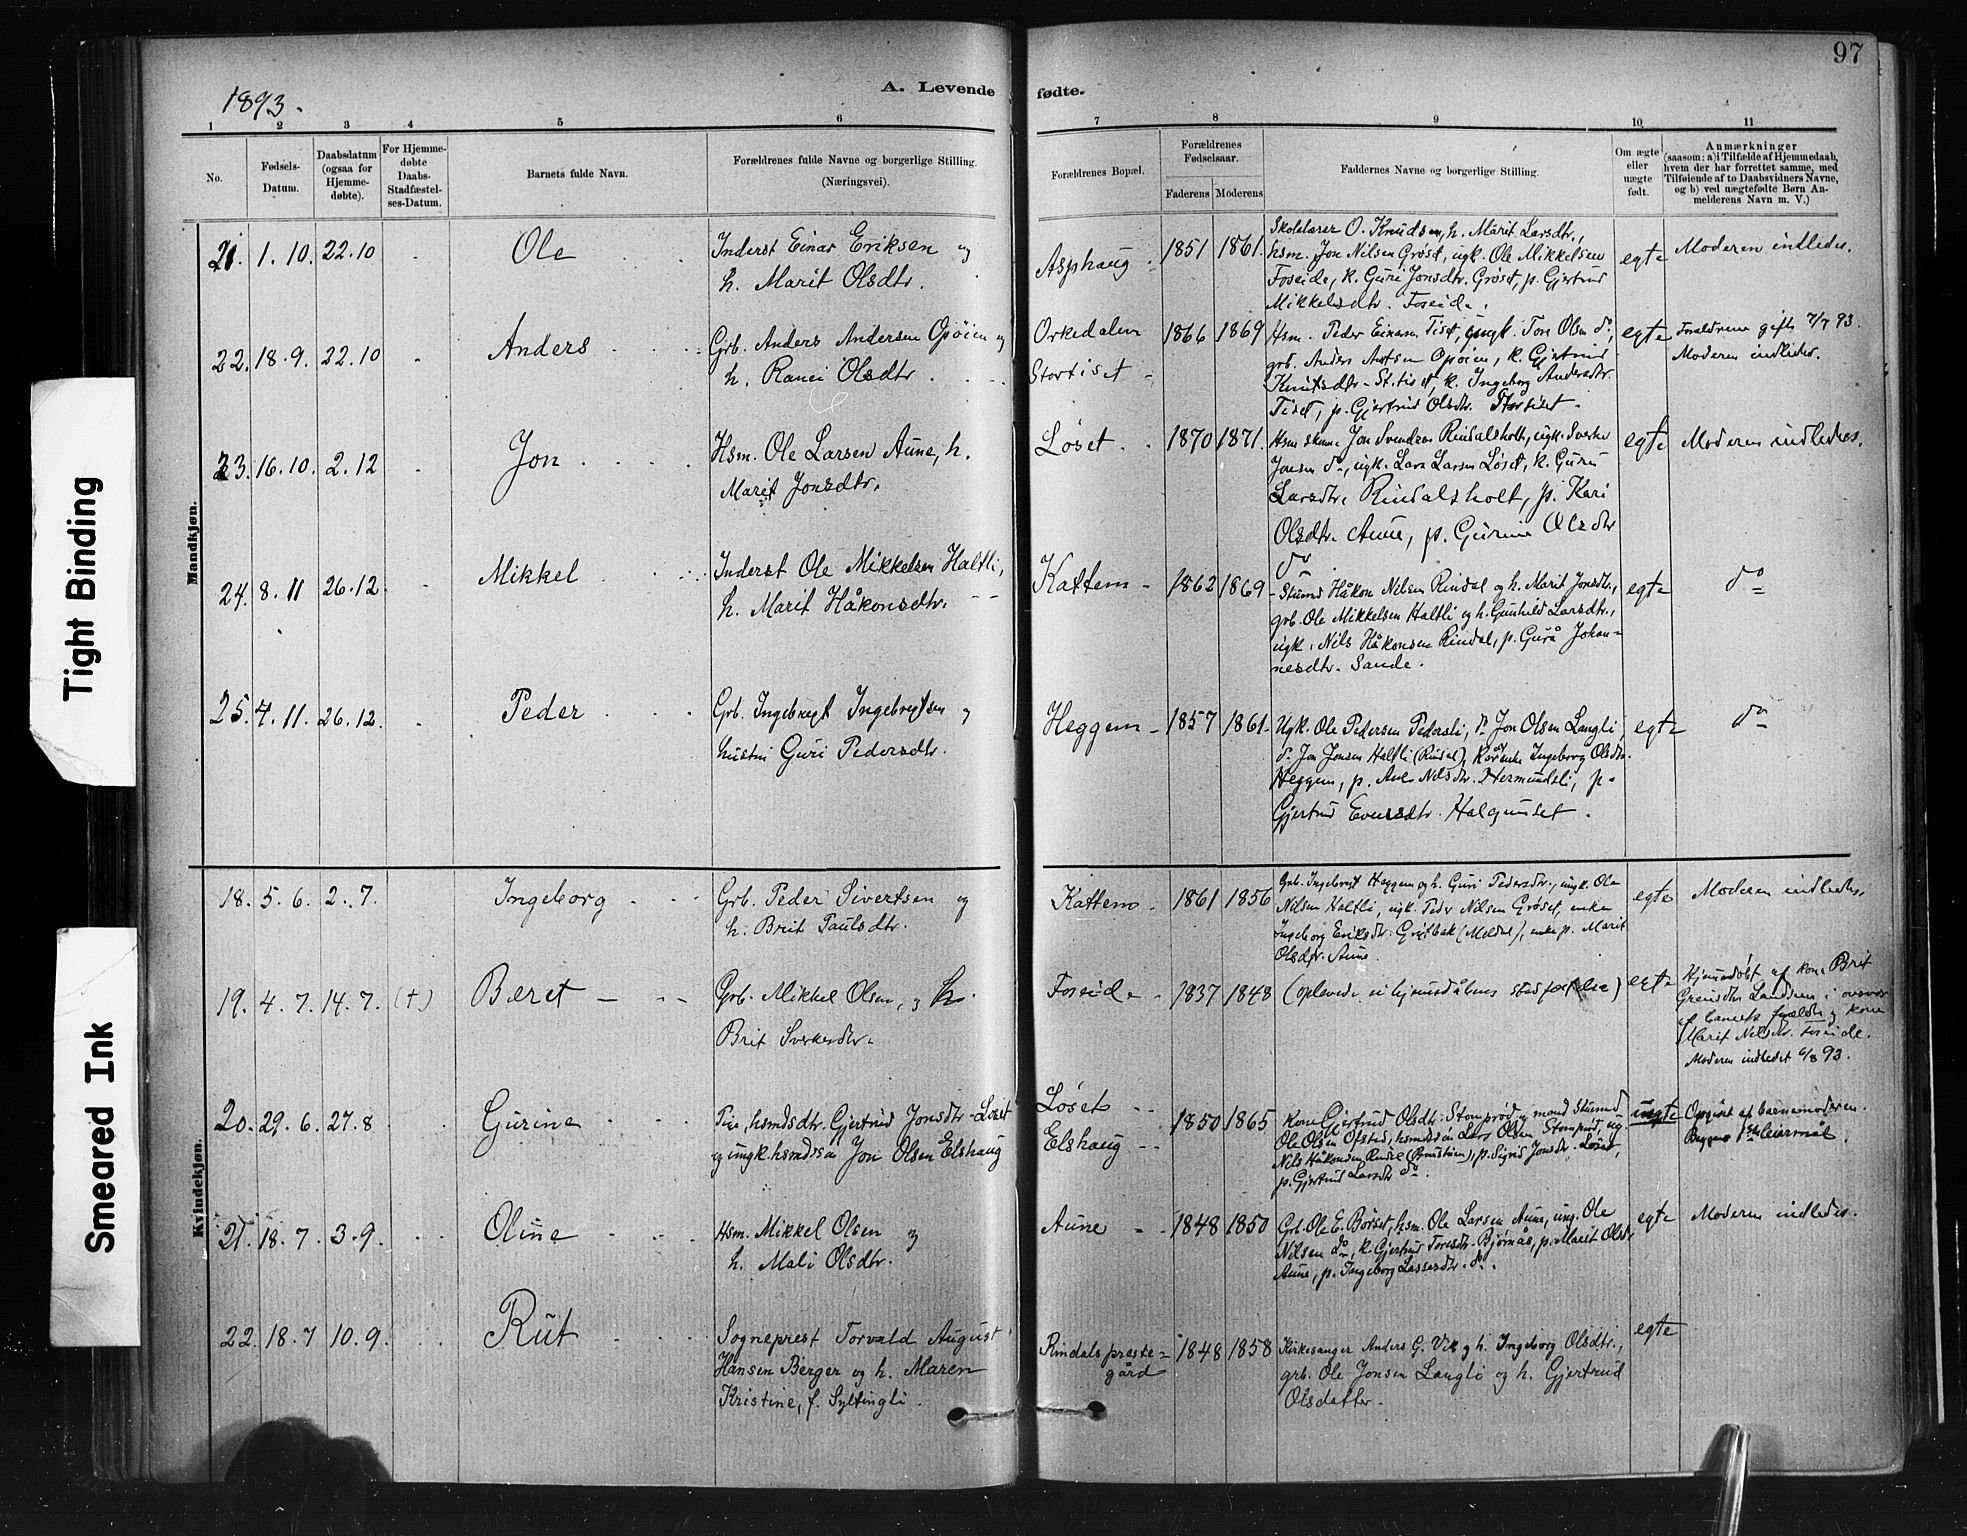 97
1893.
A. Levende
fødte.
1 2 3 4 5 6 7 8 9 10 11
No.
Fødsels-
Datum.
Daabsdatum
(ogsaa for
Hjemme-
døbte).
For Hjemme-
døbte
Daabs-
Stadfæstel-
ses-Datum.
Barnets fulde Navn.
Forældrenes fulde Navne og borgerlige Stilling.
(Næringsvei).
Forældrenes Bopæl.
Forældrenes
Fødselsaar.
Faderens Moderens
Faddernes Navne og borgerlige Stilling.
Om ægte
eller
uægte
født.
Anmærkninger
(saasom: a) i Tilfælde af Hjemmedaab,
hvem der har forrettet samme, med
Tilføiende af to Daabsvidners Navne,
og b) ved uægtefødte Børn An-
melderens Navn m. V.)
Mandkjøn.
21. 1. 10. 22. 10
Ole
Inderst Einar Eriksen og
h. Marit Olsdtr.
Asphaug
1851 1861.
Skolelærer O. Knudsen, h. Marit Larsdtr.,
hsm. Jon Nilsen Grøset, ugk. Ole Mikkelsen
Foseide, k. Guri Jonsdtr. Grøset, p. Gjertrud
Mikkelsdtr. Foseide.
egte
Moderen indledes.
22. 18. 9. 22. 10
Anders
Grb. Anders Andersen Opøien og
h. Ranei Olsdtr.
Orkedalen
Stortiset
1866 1869
Hsm. Peder Tiset, ungk. Tore Olsen do,
grb. Anders Opøien, k. Gjertrud
Knutsdtr. St. tiset, k. Ingeborg Andersdtr.
Tiset, p. Gjertrud Olsdtr. Stortiset.
egte
Forældrene gift 7/7 93.
Moderen indledes.
23. 16. 10. 2. 12
Jon
Hsm. Ole Larsen Aune, h.
Marit Jonsdtr.
Løset
1870 1871.
Jon Svendsen Rindalsholt, ugk. Sverke
Jonsen do, ugk. Lars Larsen Løset, k. Guru
Larsdtr. Rindalsholt, p. Kari
Olsdtr. Aune, p. Gurine Olsdtr
do
egte
Moderen indledes.
24. 8. 11 26. 12
Mikkel
Inderst Ole Mikkelsen Haltli,
h. Marit Håkonsdtr.
Kattem
1862 1869
Håkon Nilsen Rindal og h. Marit Jonsdtr.,
grb. Ole Mikkelsen Haltli og h. Gunhild Larsdtr.,
ugk. Nils Håkonsen Rindal, p. Gurå Johan-
nesdtr. Sande.
egte
do
25. 4. 11. 26. 12.
Peder
Grb. Ingebregt Ingebregtsen og
hustru Guri Pedersdtr.
Heggem
1857 1861.
Ugk. Ole Pedersen Pedersli, do Jon Olsen Langli,
do Jon Jonsen Haltli (Rindal), Ingeborg Olsdtr.
Heggem, p. Ane Nilsdtr. Hermundsli, p.
Gjertrud Halgunset.
egte
do
Kvindekjøn.
18. 5. 6. 2. 7.
Ingeborg
Grb. Peder Sivertsen og
h. Brit Paulsdtr.
Kattem
1861 1856
Grb. Ingebregt Heggem og h. Guri Pedersdtr., ungk. Ole
Nilsen Haltli, ugk. Peder Nilsen Grøset, enke
Ingeborg Eriksdtr. (Meldal), enke p. Marit
Olsdtr. Aune.
egte
Moderen indledes.
19. 4. 7. 14. 7. (†)
Beret
Grb. Mikkel Olsen, og h.
Brit Sverkesdtr.
Foseide
1837 1848
(oplevede ei hjemmedåbens stadfæstelse)
egte
Hjemmedøbt af kone Brit
i overvær
af barnets forældre og kone
Marit Nilsdtr. Foseide.
Moderen indledet 6/8 93.
20. 29. 6. 27. 8
Gurine
Pige, hsmdsdtr. Gjertrud Jonsdtr. Løset
og ungk. hsmdssøn Jon Olsen Elshaug
Løset
Elshaug
1850 1865
Kone Gjertrud Olsdtr. Stomprød og mand
Ole Olsen Ofsted, hsmdssøn Lars Olsen Stomprød, ug.
Nils Håkonsen Rindal, p. Sigrid Jonsdtr. Løset,
p. Gjertrud Larsdtr do
uegte
Opgivet af barnemoderen.
Begges leiermål.
21. 18. 7. 3. 9.
Oline
Hsm. Mikkel Olsen og
h. Mali Olsdtr.
Aune
1848 1850
Grb. Ole E. Børset, hsm. Ole Larsen Aune, ung. Ole
Nilsen do, k. Gjertrud Toresdtr. Bjørnås, p. Marit Olsdtr.
Aune, p. Ingeborg Lassesdtr. do.
egte
Moderen indledes.
22. 18. 7 10. 9.
Rut
Sogneprest Torvald August
Hansen Berger og h. Maren
Kristine, f. Syltingli.
Rindals preste-
gård
1848 1858
Kirkesanger Anders G. Vik og h. Ingeborg Olsdtr.,
grb. Ole Jonsen Langli og h. Gjertrud
Olsdatter.
egte
Tight Binding
Smeared Ink